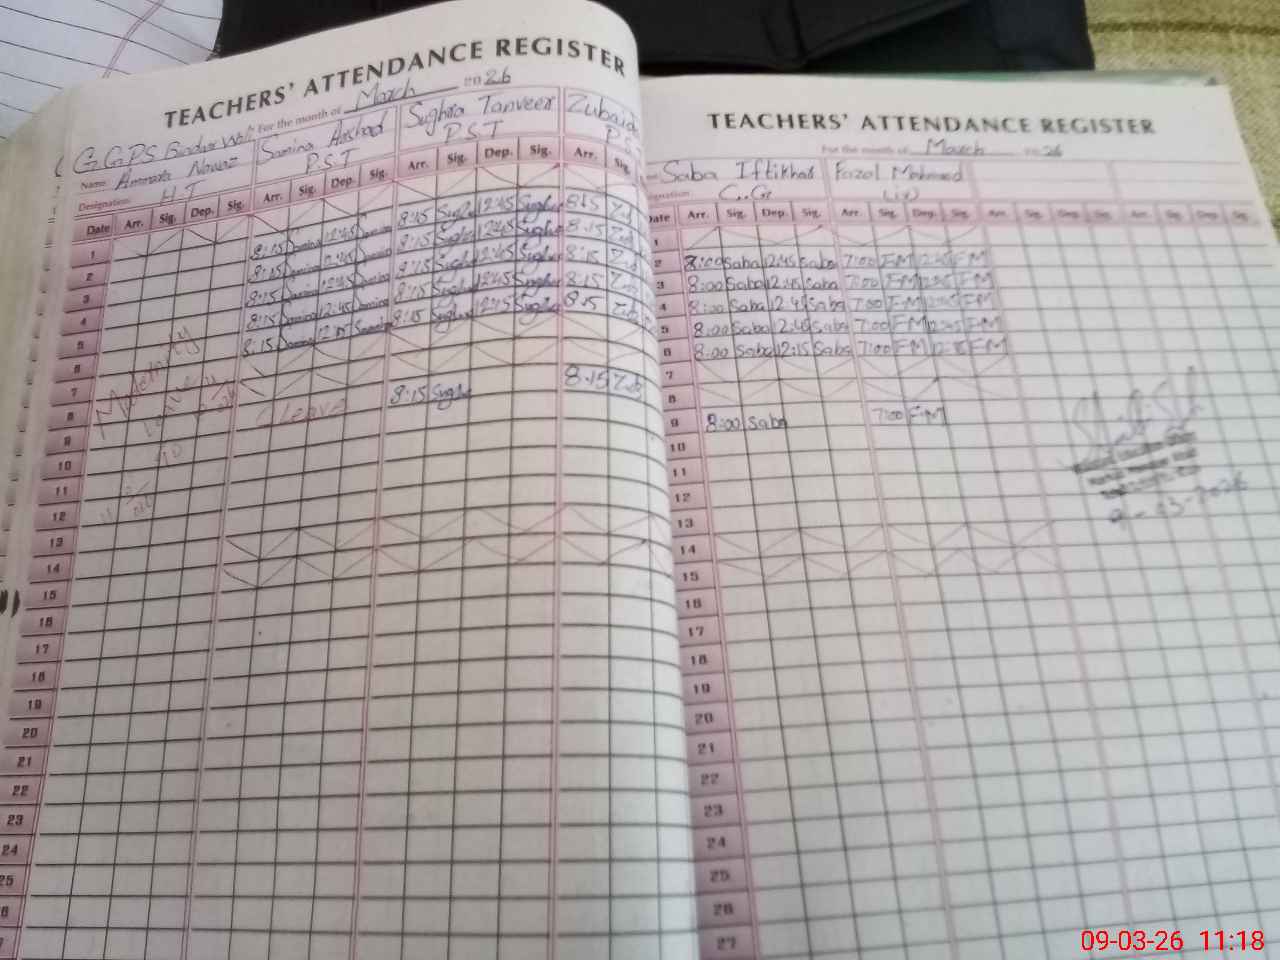 TEACHERS' ATTENDANCE REGISTER
For the month of March 2026
GGPS
Name: Ammara Nawaz Samina Arshad Sughra Tanveer Zubaida
Designation: HT PST PST PS
Date Arr. Sig. Dep. Sig. Arr. Sig. Dep. Sig. Arr. Sig. Dep. Sig. Arr. Sig.
1
2 8:15 Samina 12:45 Samina 8:15 Sughra 12:45 Sughra 8:15 Zub
3 8:15 Samina 12:45 Samina 8:15 Sughra 12:45 Sughra 8:15 Zub
4 8:15 Samina 12:45 Samina 8:15 Sughra 12:45 Sughra 8:15 Zub
5 8:15 Samina 12:45 Samina 8:15 Sughra 12:45 Sughra 8:15 Zub
6 8:15 Samina 12:15 Samina 8:15 Sughra 12:15 Sughra 8:15 Zub
7
8
9 Leave 8:15 Sughra 8:15 Zub
Maternity
Leave
to
10
11
12
13
14
15
16
17
18
19
20
21
22
23
24
25
TEACHERS' ATTENDANCE REGISTER
For the month of March 2026
Saba Iftikhar Fazal Mahmood
Designation: C.G (iv)
Date Arr. Sig. Dep. Sig. Arr. Sig. Dep. Sig. Arr. Sig. Dep. Sig. Arr. Sig. Dep. Sig.
1
2 8:00 Saba 12:45 Saba 7:00 F.M 12:45 F.M
3 8:00 Saba 12:45 Saba 7:00 F.M 12:45 F.M
4 8:00 Saba 12:45 Saba 7:00 F.M 12:45 F.M
5 8:00 Saba 12:45 Saba 7:00 F.M 12:45 F.M
6 8:00 Saba 12:15 Saba 7:00 F.M 12:15 F.M
7
8
9 8:00 Saba 7:00 F.M
10
11
12
9-03-2026
13
14
15
16
17
18
19
20
21
22
23
24
25
26
27
09-03-26 11:18